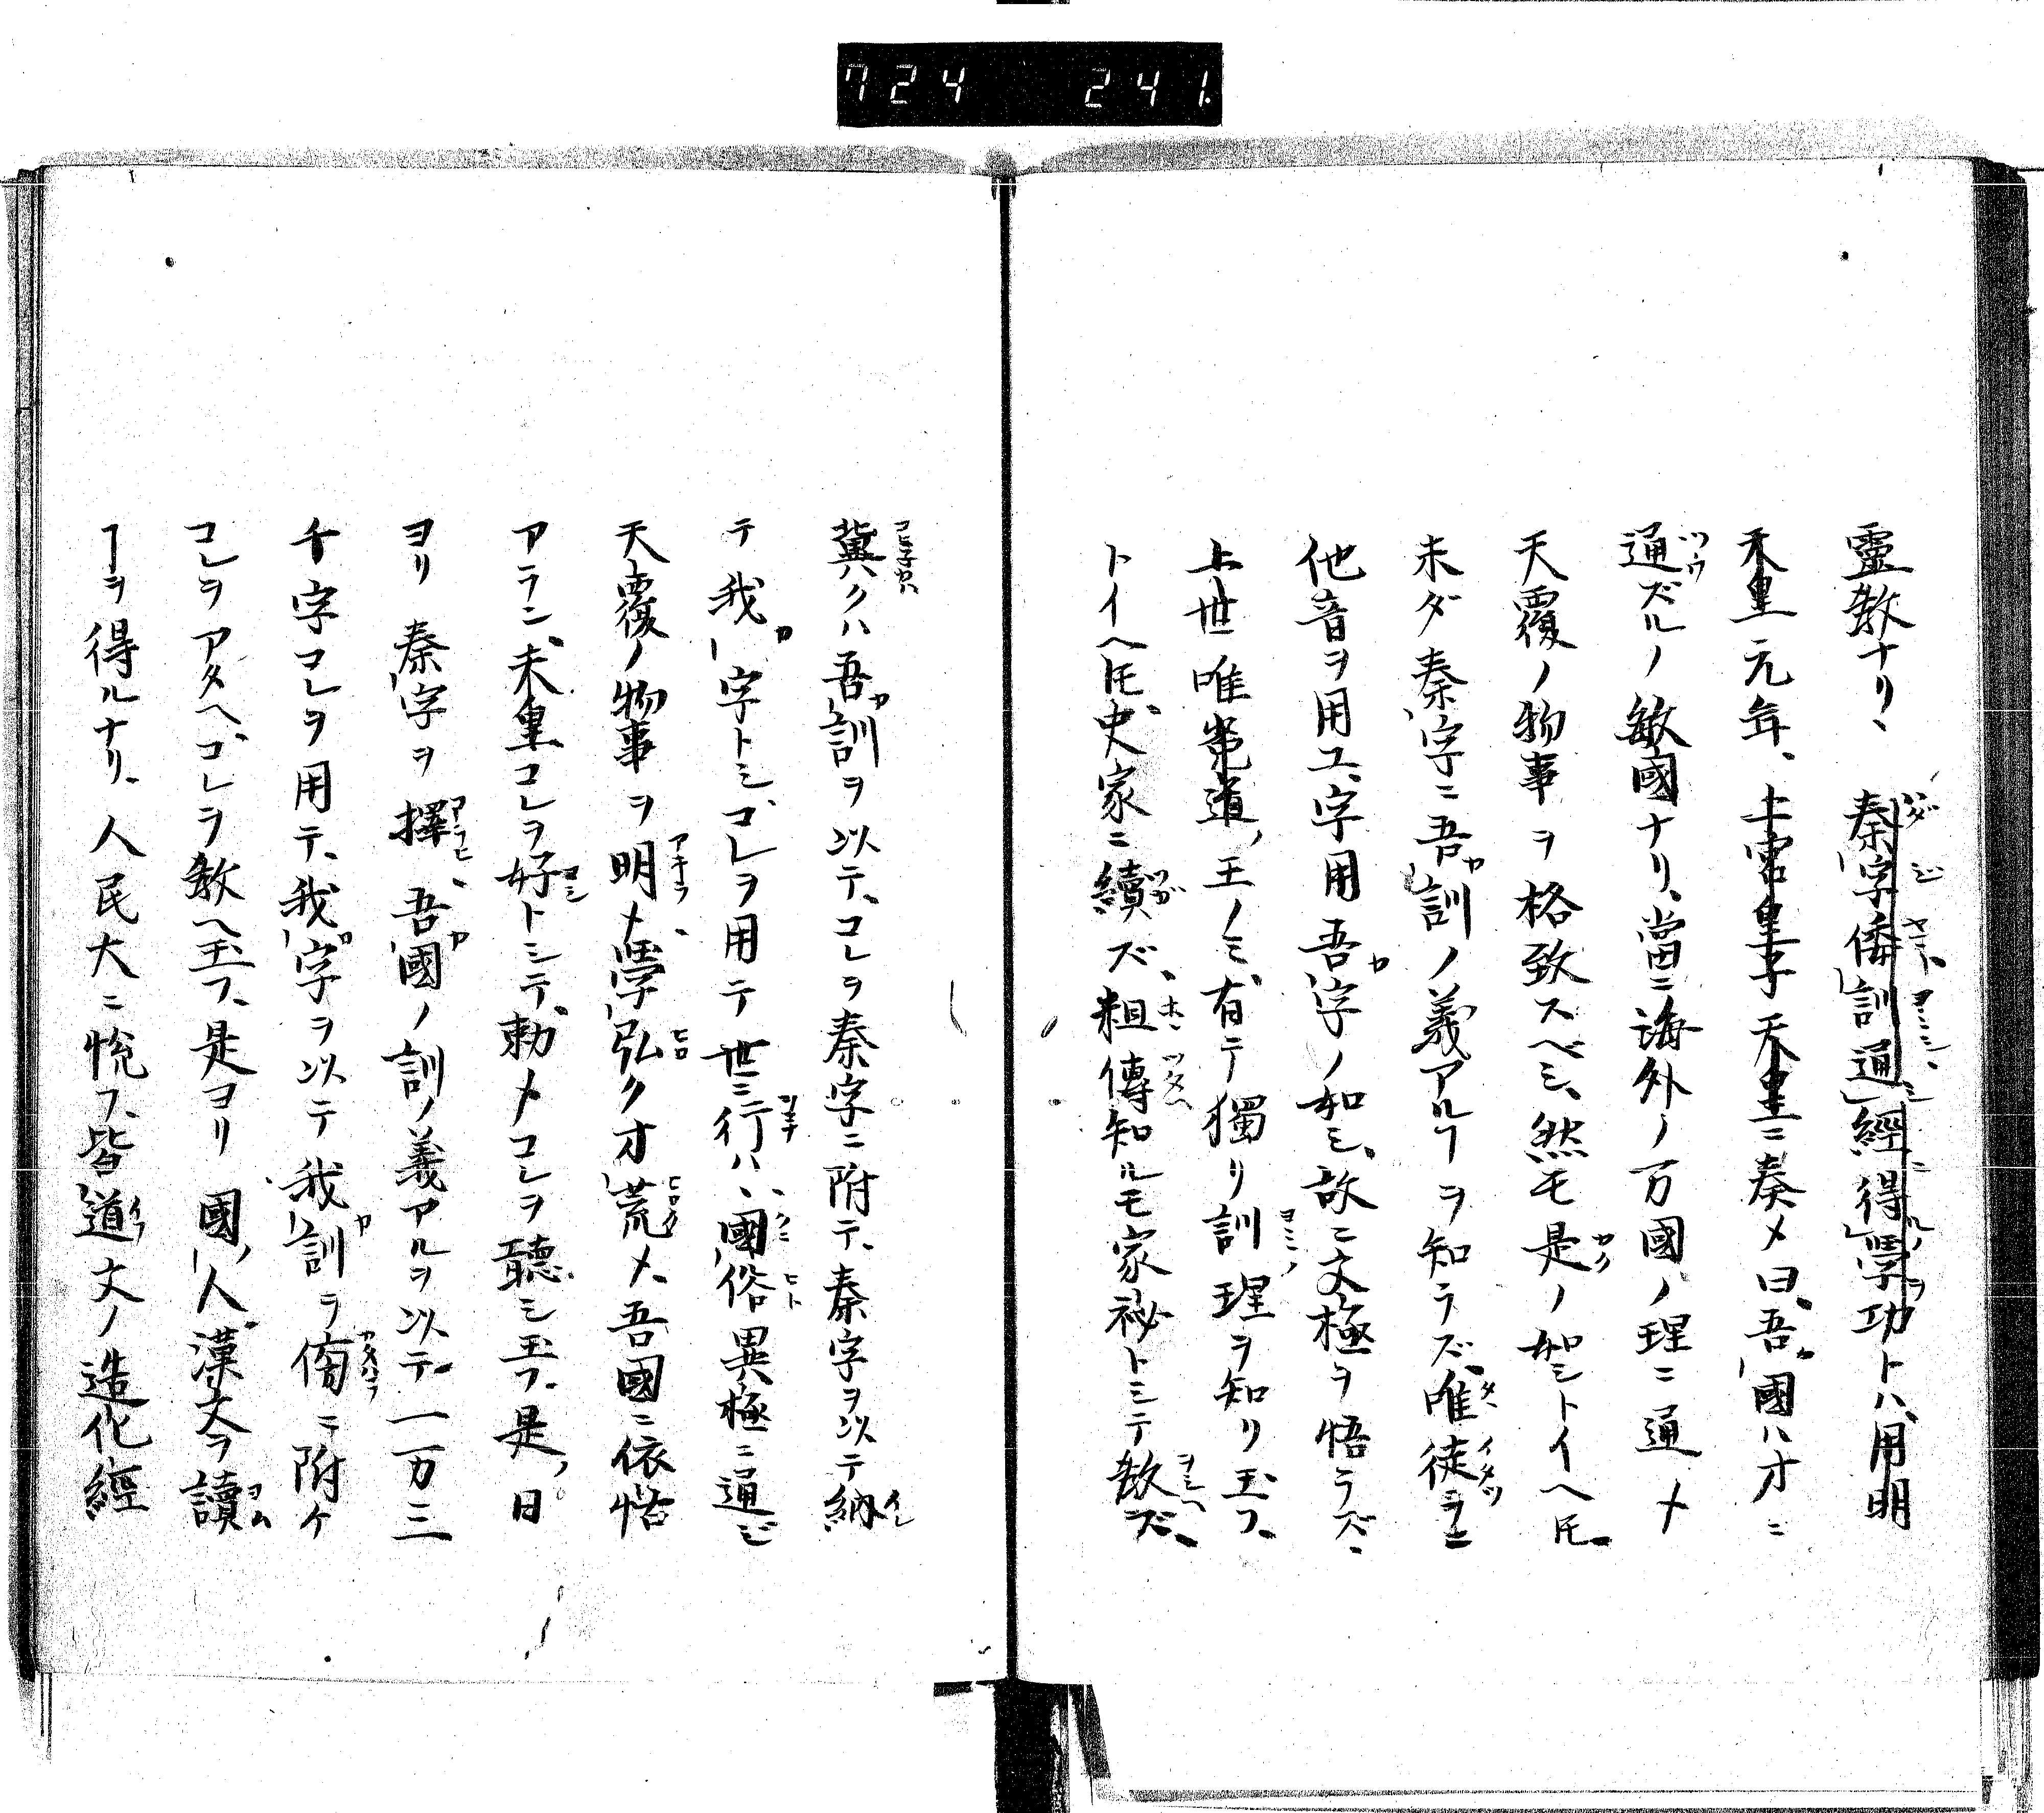 724 241.
靈教ナリ、秦字倭訓通經得學功トハ、用明
天皇元年、上宮皇子天皇ニ奏メ曰、吾國ハ才ニ
通ズルノ敏國ナリ、當ニ海外ノ万國ノ理ニ通メ
天覆ノ物事ヲ格致スベシ、然モ是ノ如シトイヘ𪜈、
未ダ秦字ニ吾訓ノ義アルヿヲ知ラズ、唯徒ラニ
他音ヲ用エ、字用吾字ノ如シ、故ニ文極ヲ悟ラズ、
上世唯道ノ王ノミ有テ獨リ訓理ヲ知リ玉フ、
トイヘ𪜈、史家ニ續ズ、粗傳知ルモ家祕トシテ教ズ、
冀ハクハ吾訓ヲ以テ、コレヲ秦字ニ附テ、秦字ヲ以テ納
テ我字トシ、コレヲ用テ世ニ行ハヽ、國俗異極ニ通ジ
天覆ノ物事ヲ明メ、學弘ク才荒メ、吾國ニ依怙
アラン、天皇コレヲ好トシテ、勅メコレヲ聽シ玉フ、是ノ日
ヨリ秦字ヲ擇、吾國ノ訓ノ義アルヲ以テ、一万三
千字コレヲ用テ、我字ヲ以テ我訓ヲ傍ニ附ケ
コレヲアタヘ、コレヲ教ヘ玉フ、是ヨリ國人漢文ヲ讀
ヿヲ得ルナリ、人民大ニ悅フ、皆道文ノ造化經